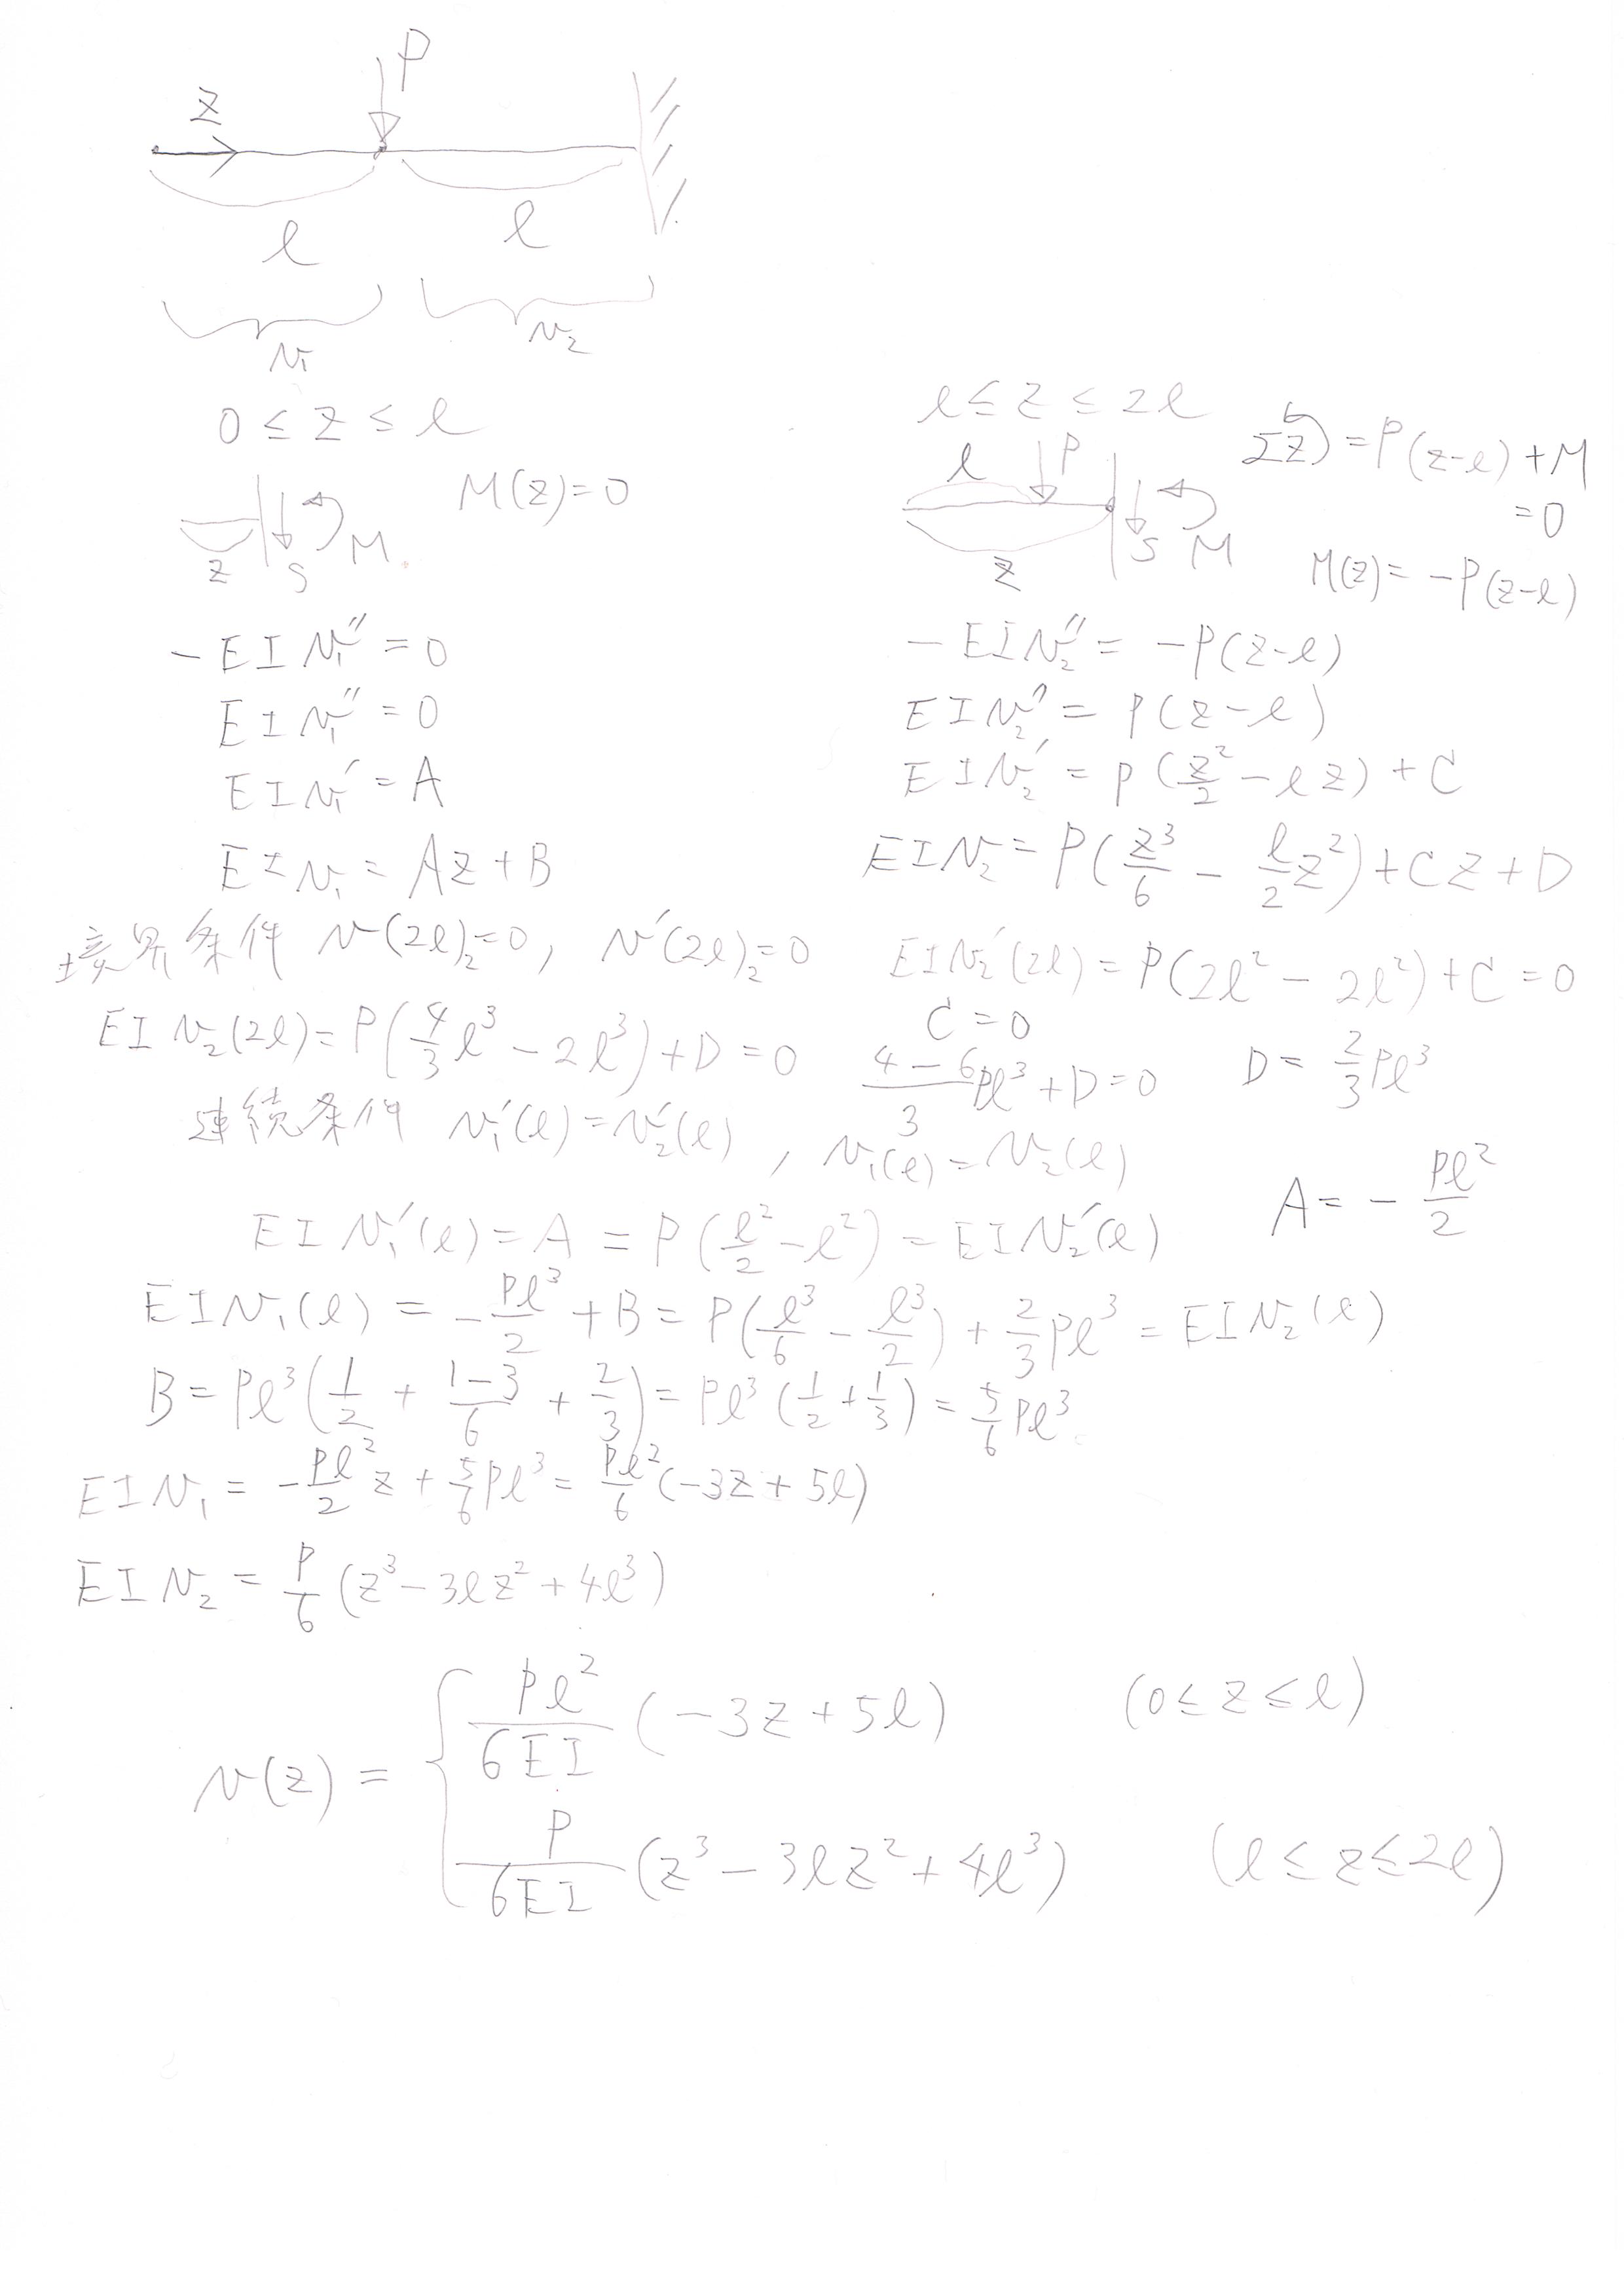 P
z
l l
v₁ v₂
0 ≤ z ≤ l
M(z)=0
z S M
-EIv₁''=0
EIv₁''=0
EIv₁'=A
EIv₁=Az+B
l ≤ z ≤ 2l
l P
z S M
=P(z-l)+M
=0
M(z)=-P(z-l)
-EIv₂''=-P(z-l)
EIv₂''=P(z-l)
EIv₂'=P(z²/2-lz)+C
EIv₂=P(z³/6-l/2 z²)+Cz+D
境界条件 v(2l)₂=0, v'(2l)₂=0
EIv₂'(2l)=P(2l²-2l²)+C=0
C=0
EIv₂(2l)=P(4/3 l³-2l³)+D=0
(4-6)/3 Pl³+D=0
D=2/3 Pl³
連続条件 v₁'(l)=v₂'(l), v₁(l)=v₂(l)
EIv₁'(l)=A=P(l²/2-l²)=EIv₂'(l)
A=-Pl²/2
EIv₁(l)=-Pl³/2+B=P(l³/6-l³/2)+2/3 Pl³=EIv₂(l)
B=Pl³(1/2+(1-3)/6+2/3)=Pl³(1/2+1/3)=5/6 Pl³
EIv₁=-Pl²/2 z+5/6 Pl³=Pl²/6(-3z+5l)
EIv₂=P/6(z³-3lz²+4l³)
v(z)={ Pl²/6EI (-3z+5l) (0≤z≤l)
P/6EI (z³-3lz²+4l³) (l≤z≤2l)